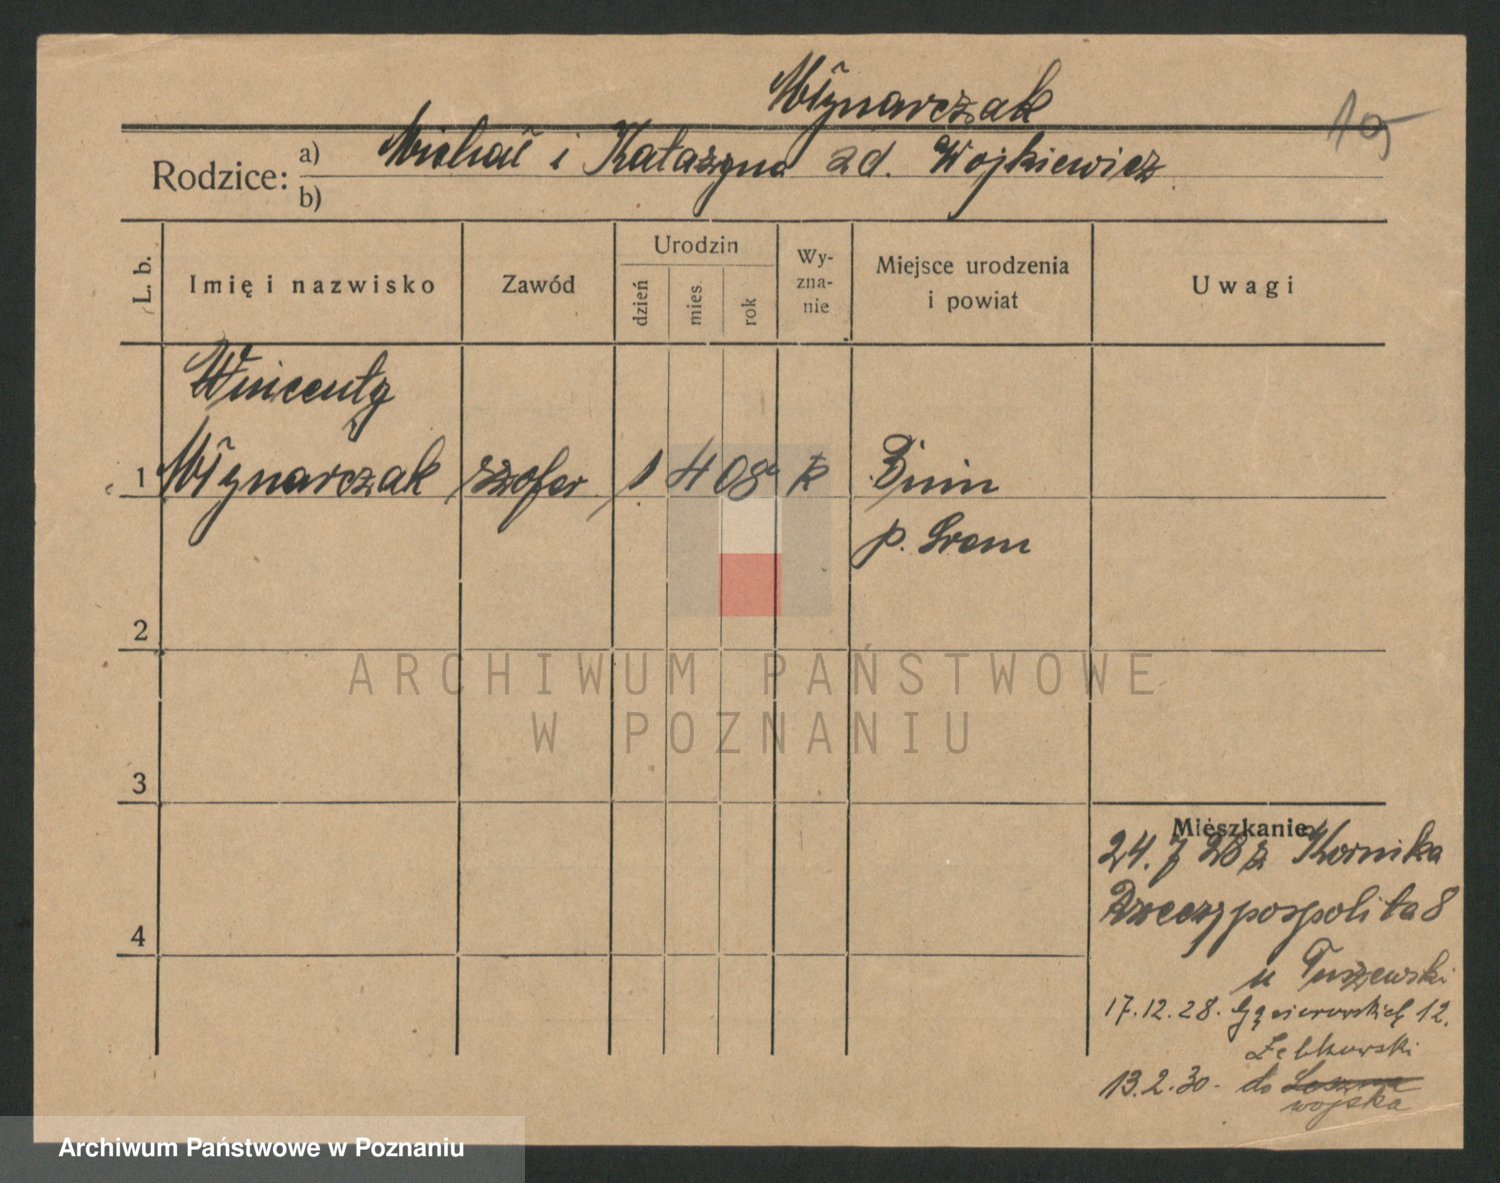 Młynarczak
19
Rodzice: a) Michał i Katarzyna zd. Wojkiewicz
b)
L. b.
Imię i nazwisko
Zawód
Urodzin
dzień
mies.
rok
Wy-
zna-
nie
Miejsce urodzenia
i powiat
Uwagi
Wincenty
1 Młynarczak szofer 1 4 08 k Bnin
p. Srem
2
3
4
Mieszkanie
24. 7 28 z Kornika
Rzeczypospolita 8
u Tuszewski
17.12.28. Gąsiorowskich 12.
Łebkowski
13.2.30. do
wojska
ARCHIWUM PAŃSTWOWE
W POZNANIU
Archiwum Państwowe w Poznaniu